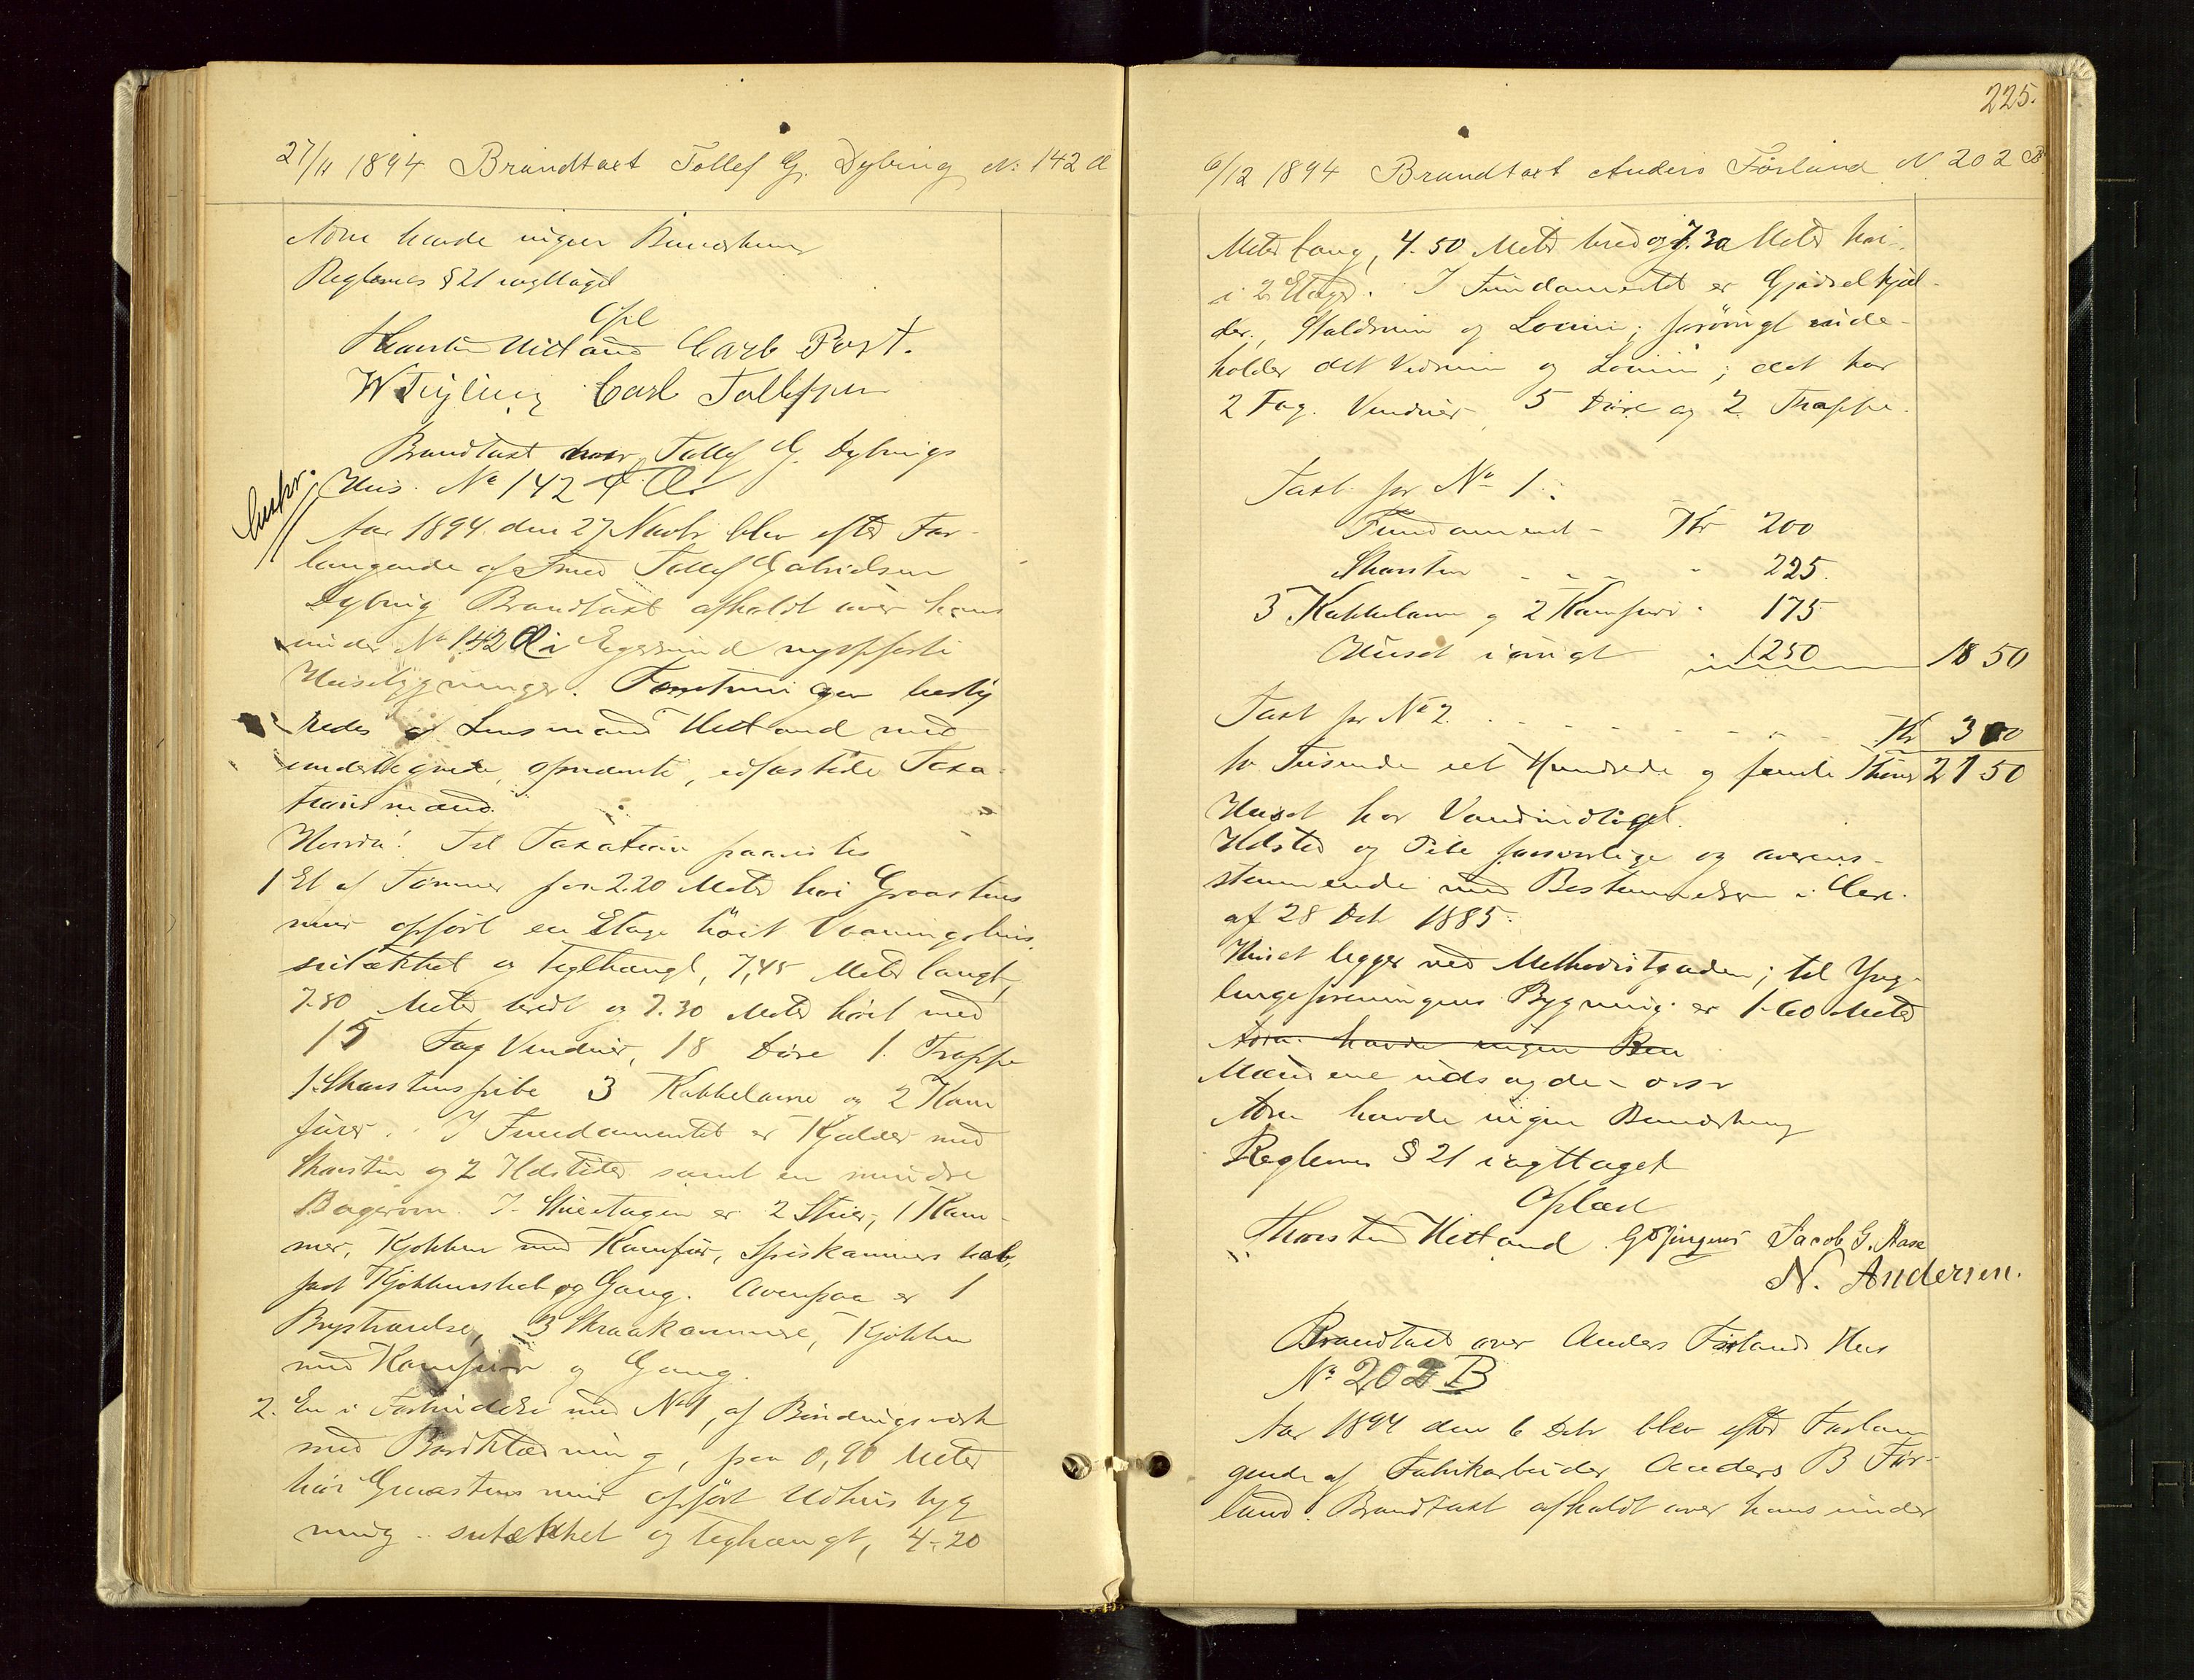 27/11 1894 Brandtaxt Tollef G. Dybing No: 142 a
Arne havde ingen Bemærkning
Reglernes § 21 iagttaget
Opl
Thorsten Hetland Carl Post.
W Feyling Carl Tollefsen
Brandtaxt over Tollef G. Dybings
Hus. No 142 a.
Aar 1894. den 27 Novbr blev efter For-
langende af Tollef Gabrielsen
Dybing Brandtaxt afholdt over hans
under No 142 a i Egersund nyopførte
Huusbygninger. Forretningen besty
redes af Lensmand Hetland med
undertegnede, opnævnte, edfæstede Taxa-
tionsmænd.
Herda! Til Taxation paavistes
1 Et af Tømmer paa 2.20 Meter høi Graastens
mur opført en Etage høit Vaaningshus,
sutækket og teglhængt, 7,45 Meter langt,
7.80 Meter bredt og 7.30 Meter høit med
15 Fag Vinduer, 18 Døre 1. Trappe
1. Skorstenspibe 3 Kakkelovne og 2 Kom
fürer. I Fundamentet er Kjælder med
Skorsten og 2 Ildsteder samt en mindre
Bagerovn. I Stueetagen er 2 Stuer, 1 Kam-
mer, Kjøkken med Komfür, Spiskammers
Kjøkken og Gang. Ovenpaa er 1
3 Skraakammere, Kjøkken
med Komfür og Gang.
2. En i Forbindelse med No 1, af Bindingsværk
med Bordklædning, paa 0,90 Meter
høi Graastens mur opført Udhus byg
ning sutækket og teglhængt, 4.20
225.
6/12 1894 Brandtaxt Anders Førland N. 202 B
Meter lang, 4.50 Meter bred og 7.30 Meter høi.
i 2 Etager. I Fundamentet er Gjødselkjæl-
der, Staldrum og Lorum; forøvrigt inde-
holder det Vedrum og Lorum; det har
2 Fag. Vinduer 5 Døre og 2 Trappe.
Taxt for No 1:
Fundament - Kr 200
Skorsten - - - - 225.
3 Kakkelovne og 2 Komfurer " 175
Huset iørigt " 1250 1850
Taxt for No 2 - - - - - - - Kr 300
to Tusinde et Hundrede og femti Kroner 2150
Huset har Vandindtaget.
Ildsted og Pibe forsvarlige og overens-
stemmende med Bestemmelsen i Cirk.
af 28 Dcb 1885.
Huset ligger ved Methodistgaden; til Yng-
lingeforeningens Bygning er 1.60 Meter
Arne havde ingen Bem
Mændene udsagde - osv
Arne havde ingen Bemærkning
Reglernes § 21 iagttaget
Oplæst
Thorsten Hetland Jacob G. Aase
N. Andersen.
Brandtaxt over Anders Førlands Hus
No 202 B
Aar 1894 den 6 Dcbr blev efter Forlan
gende af Fabrikarbeider Anders B Før-
land. Brandtaxt afholdt over hans under